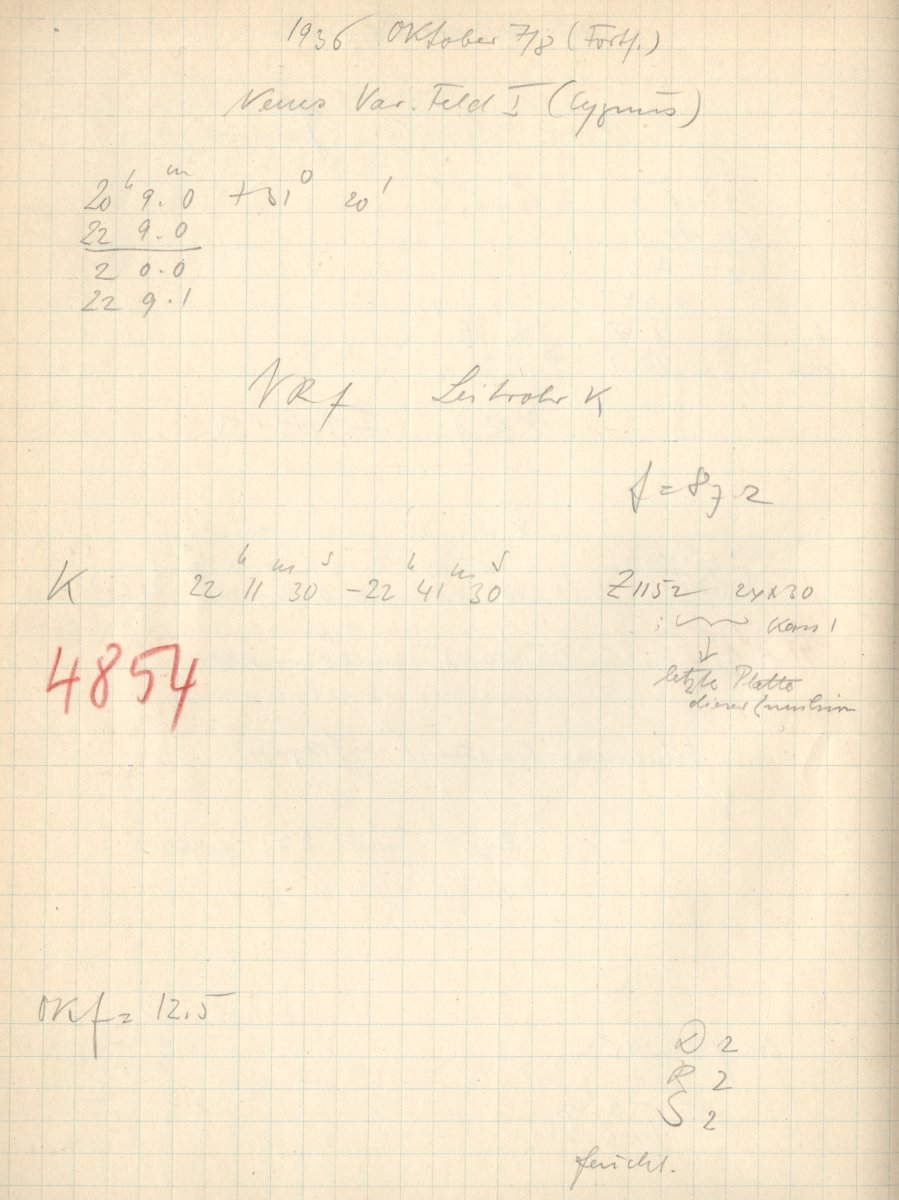 1936 Oktober 7/8 (Forts.)
Neues Var. Feld I (Cygnus)
20ʰ 9.ᵐ0 +31° 20'
22 9.0
2 0.0
22 9.1
Leitrohr K
f = 87.2
K 22ʰ 11ᵐ 30ˢ - 22ʰ 41ᵐ 30ˢ Z1152 24x30
Kass 1
letzte Platte
dieser Emulsion
4854
OKf = 12.5
D 2
R 2
S 2
feucht.